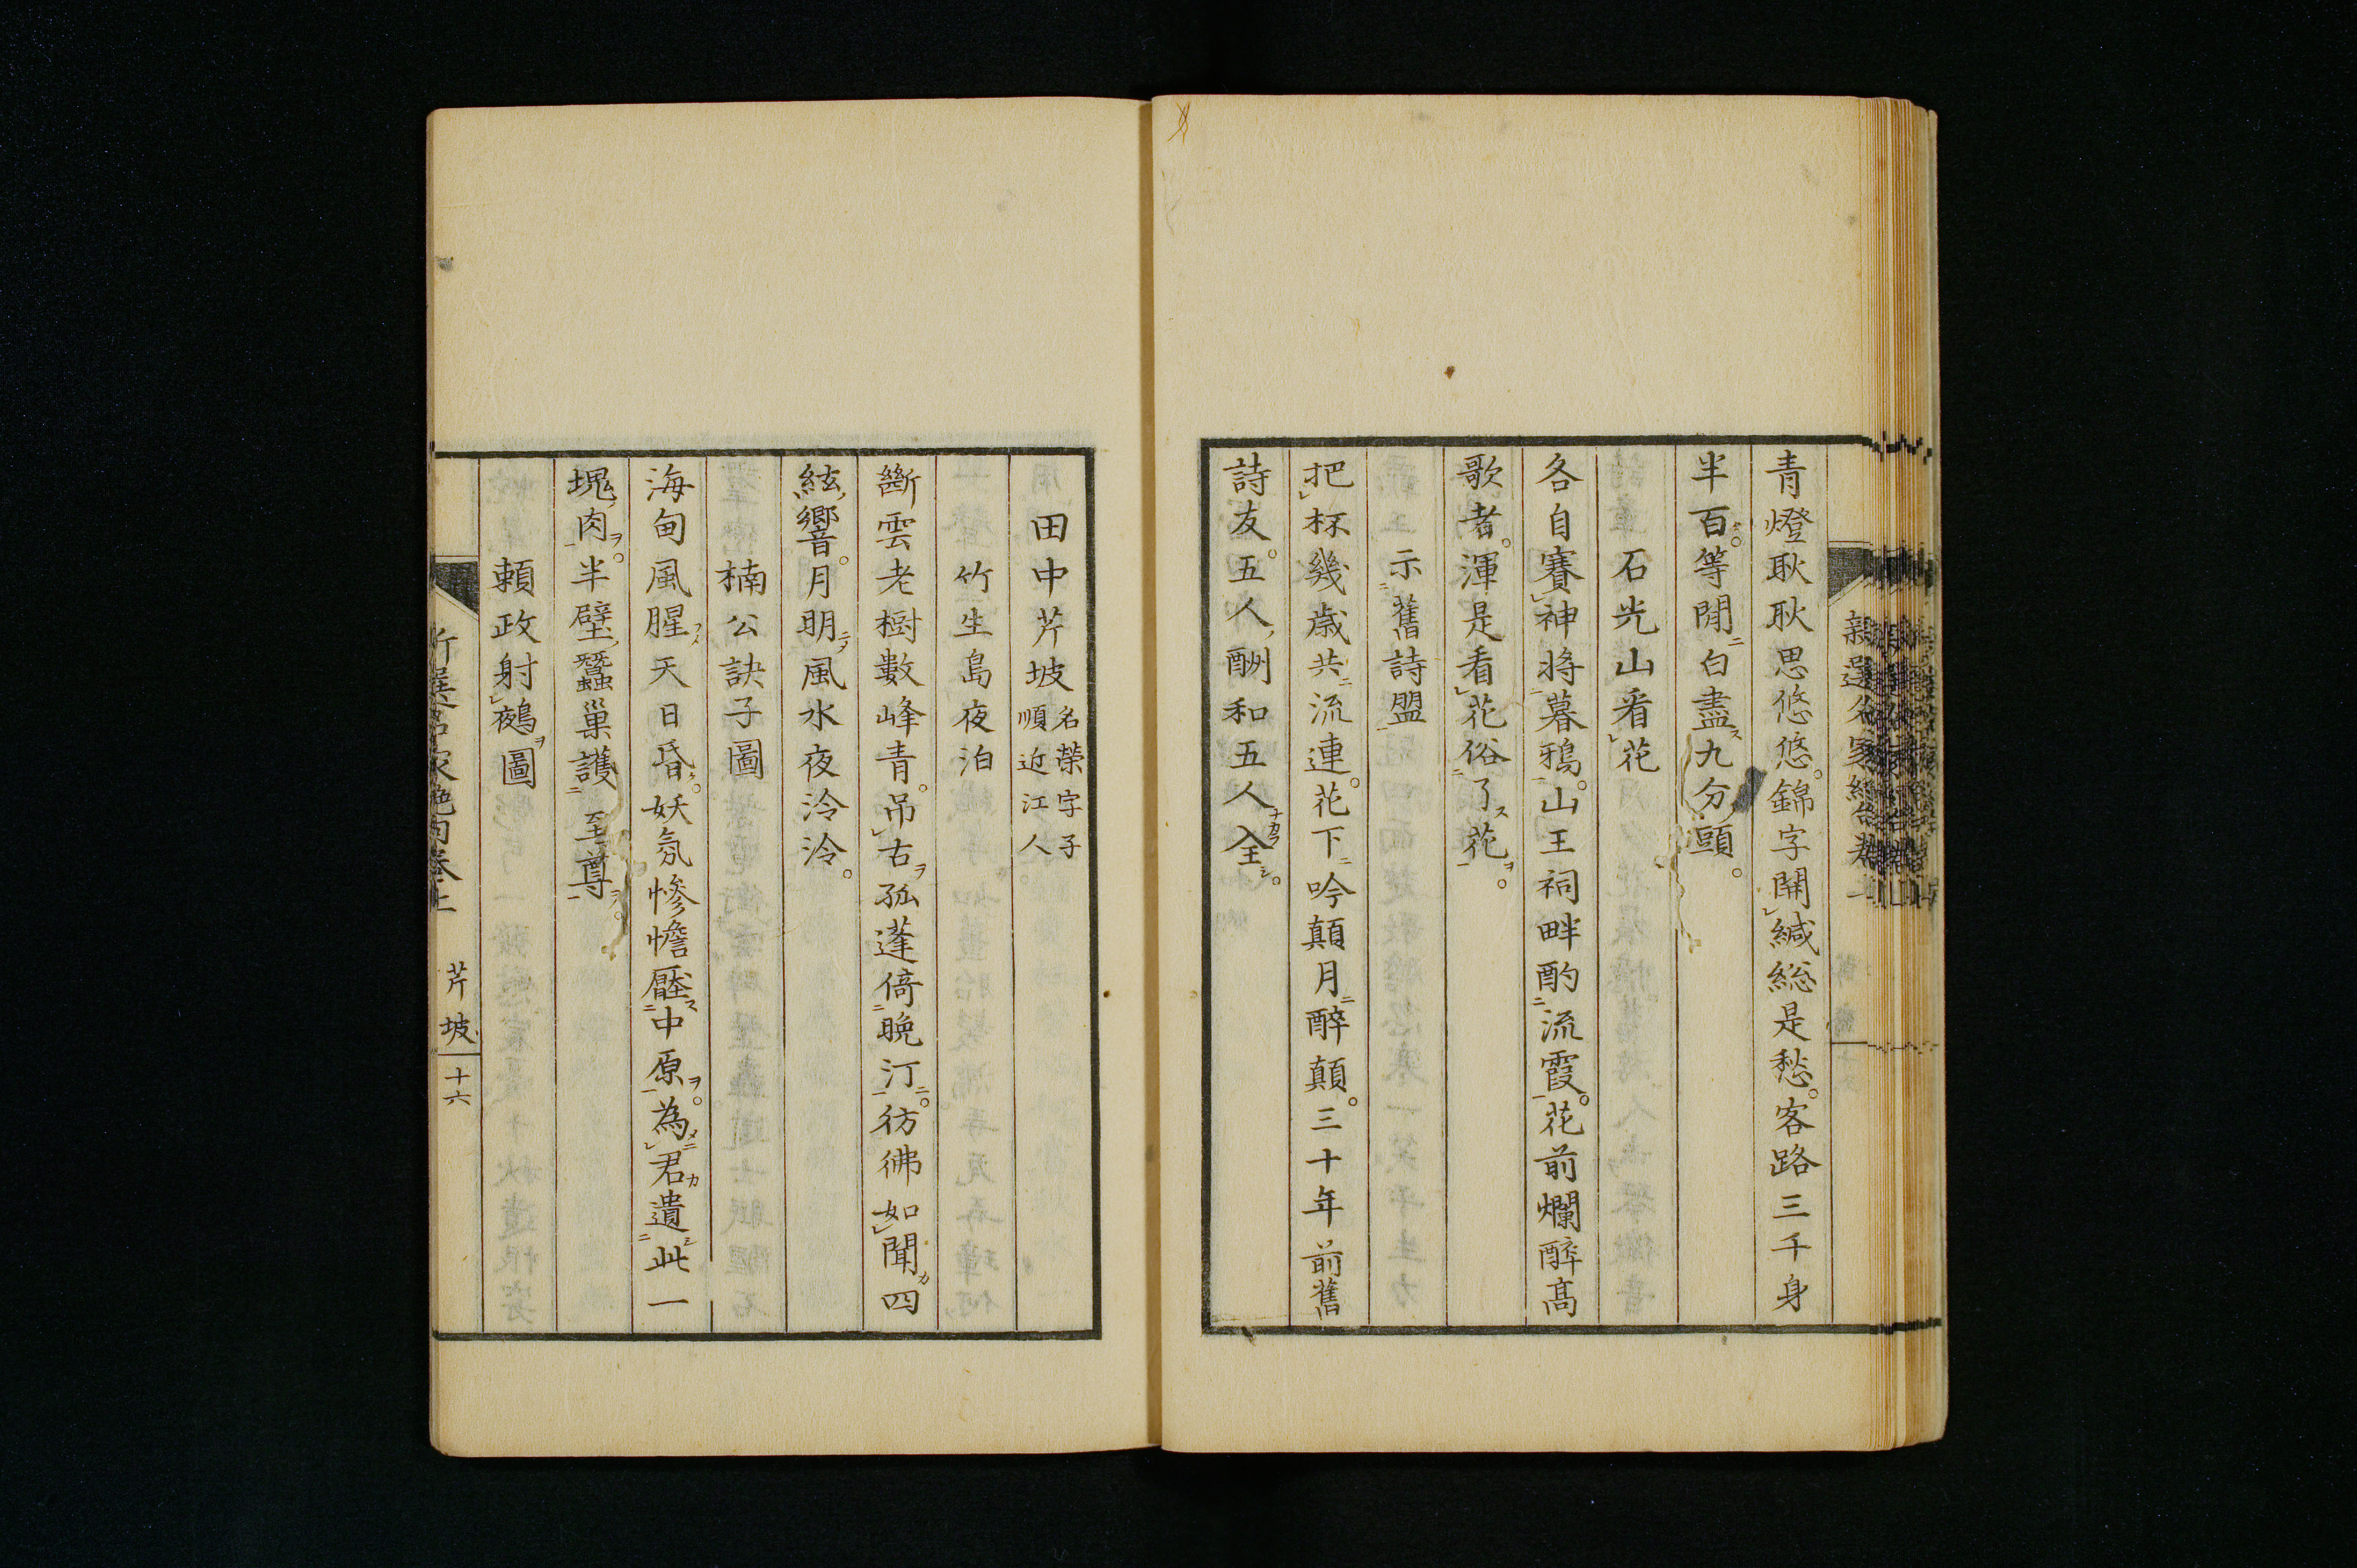 青燈耿耿思悠悠。錦字開緘総是愁。客路三千身
半百。等閒白盡九分頭。
石光山看花
各自賽神將暮鴉。山王祠畔酌流霞。花前爛醉高
歌者。渾是看花俗了花。
示舊詩盟
把杯幾歳共流連。花下吟顛月醉顛。三十年前舊
詩友。五人酬和五人全。
田中芹坡 名榮字子順近江人
竹生島夜泊
斷雲老樹數峰青。吊古孤蓬倚晩汀。彷彿如聞四
絃響。月明風水夜泠泠。
楠公訣子圖
海甸風腥天日昏。妖氛慘憺壓中原。為君遺此一
塊肉。半壁蠶巢護至尊。
頼政射鵺圖
新選名家絶句巻上 芹坡 十六